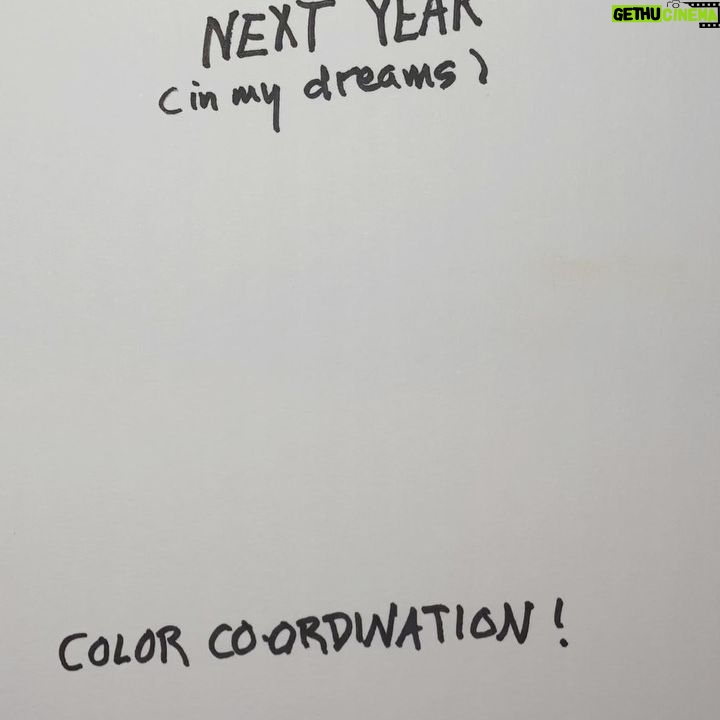 GETHUCINEMA
NEXT YEAR
(in my dreams)
COLOR CO-ORDINATION!